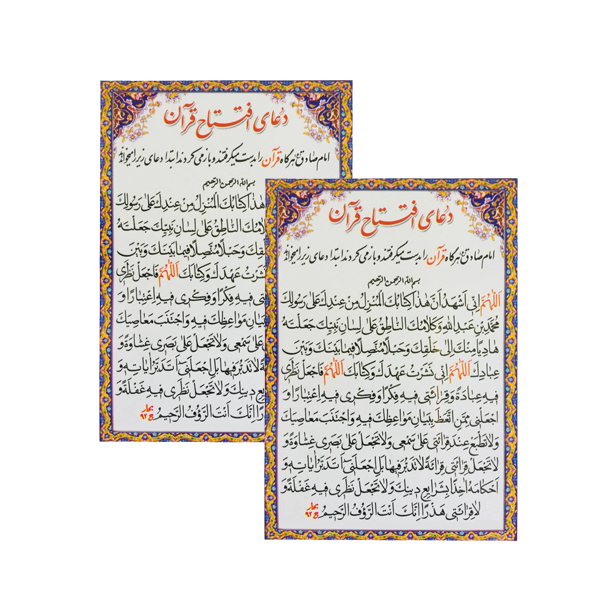 دعای افتتاح قرآن
امام صادق ع هرگاه قرآن را بدست میگرفتند و باز می‌کردند ابتدا دعای زیر را میخواندند
بسم الله الرحمن الرحیم
هذا كِتابُكَ الْمُنْزَلُ مِنْ عِنْدِكَ عَلى رَسُولِكَ
كَلامُكَ النّاطِقُ عَلى لِسانِ نَبِيِّكَ جَعَلْتَهُ
خَلْقِكَ وَحَبْلاً مُتَّصِلاً فيما بَيْنَكَ وَبَيْنَ
نَشَرْتُ عَهْدَكَ وَكِتابَكَ اَللّهُمَّ فَاجْعَلْ نَظَري
فِكْراً وَفِكْري فيهِ اعْتِباراً وَ
بِبَيانِ مَواعِظِكَ فيهِ وَاجْتَنَبَ مَعاصيكَ
عَلى سَمْعي وَلا تَجْعَلْ عَلى بَصَري غِشاوَةً وَ
لا تَدَبُّرَ فيها بَلِ اجْعَلْني اَتَدَبَّرُ اياتِهِ وَ
بِشَرايِعِ دينِكَ وَلا تَجْعَلْ نَظَري فيهِ غَفْلَةً وَ
هَذَراً اِنَّكَ اَنْتَ الرَّؤُفُ الرَّحيمُ بحار ج ۹۲
دعای افتتاح قرآن
امام صادق ع هرگاه قرآن را بدست میگرفتند و باز می‌کردند ابتدا دعای زیر را میخواندند
بسم الله الرحمن الرحیم
اَللّهُمَّ اِنّي اَشْهَدُ اَنَّ هذا كِتابُكَ الْمُنْزَلُ مِنْ عِنْدِكَ عَلى رَسُولِكَ
مُحَمَّدِ بْنِ عَبْدِ اللهِ وَكَلامُكَ النّاطِقُ عَلى لِسانِ نَبِيِّكَ جَعَلْتَهُ
هادِياً مِنْكَ اِلى خَلْقِكَ وَحَبْلاً مُتَّصِلاً فيما بَيْنَكَ وَبَيْنَ
عِبادِكَ اَللّهُمَّ اِنّي نَشَرْتُ عَهْدَكَ وَكِتابَكَ اَللّهُمَّ فَاجْعَلْ نَظَري
فيهِ عِبادَةً وَقِرائَتي فيهِ فِكْراً وَفِكْري فيهِ اعْتِباراً وَ
اجْعَلْني مِمَّنِ اتَّعَظَ بِبَيانِ مَواعِظِكَ فيهِ وَاجْتَنَبَ مَعاصيكَ
وَلا تَطْبَعْ عِنْدَ قِرائَتي عَلى سَمْعي وَلا تَجْعَلْ عَلى بَصَري غِشاوَةً وَ
لا تَجْعَلْ قِرائَتي قِرائَةً لا تَدَبُّرَ فيها بَلِ اجْعَلْني اَتَدَبَّرُ اياتِهِ وَ
اَحْكامَهُ اخِذاً بِشَرايِعِ دينِكَ وَلا تَجْعَلْ نَظَري فيهِ غَفْلَةً وَ
لا قِرائَتي هَذَراً اِنَّكَ اَنْتَ الرَّؤُفُ الرَّحيمُ بحار ج ۹۲